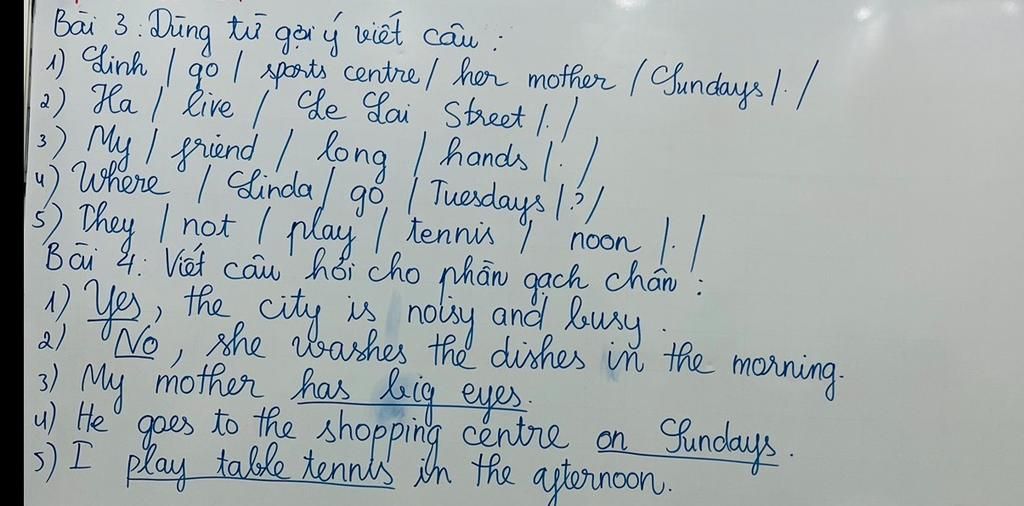 Bài 3: Dùng từ gợi ý viết câu:
1) Linh / go / sports centre / her mother / Sundays / . /
2) Ha / live / Le Lai Street / . /
3) My / friend / long / hands / . /
4) Where / Linda / go / Tuesdays / ? /
5) They / not / play / tennis / noon / . /
Bài 4: Viết câu hỏi cho phần gạch chân:
1) Yes, the city is noisy and busy.
2) No, she washes the dishes in the morning.
3) My mother has big eyes.
4) He goes to the shopping centre on Sundays.
5) I play table tennis in the afternoon.